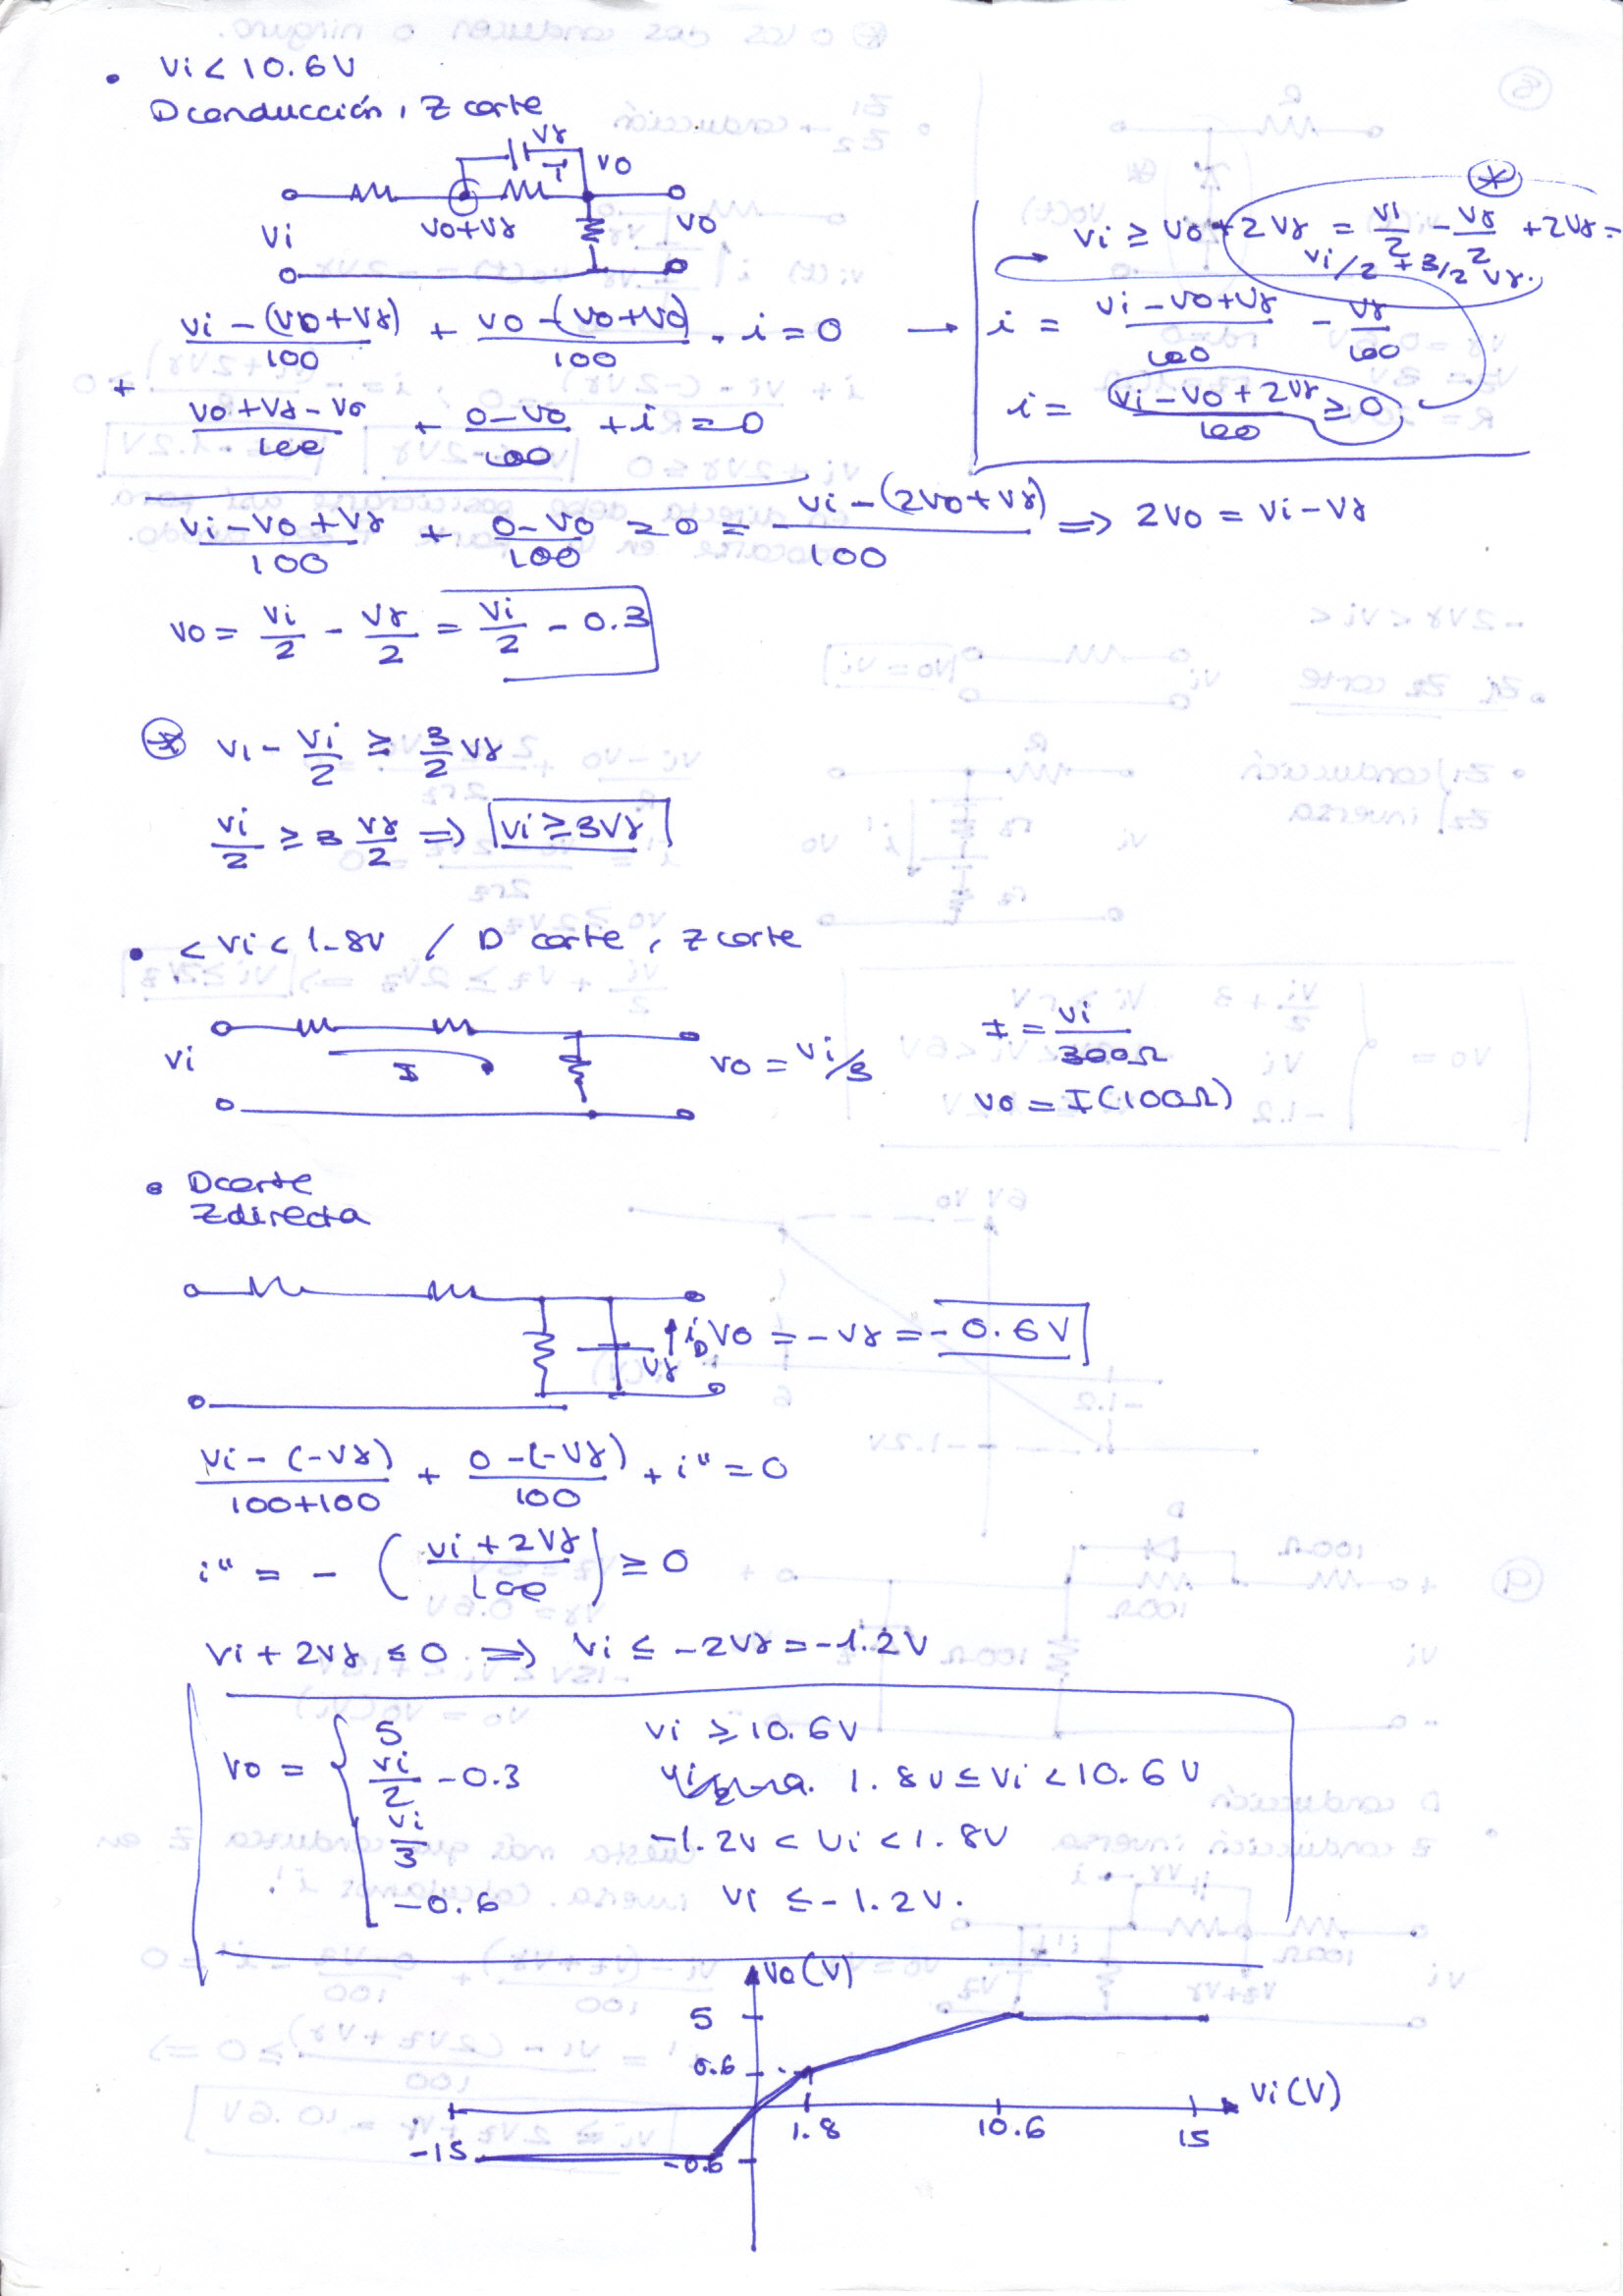 • Vi < 10.6V
D conducción, Z corte
Vγ
Vo
Vi
Vo+Vγ
Vo
(Vi - (Vo+Vγ))/100 + (Vo - (Vo+Vo))/100 - i = 0 →
+
(Vo + Vγ - Vo)/100 + (0 - Vo)/100 + i = 0
(*)
Vi ≥ Vo + 2Vγ = Vi/2 - Vγ/2 + 2Vγ =
Vi/2 + 3/2 Vγ.
i = (Vi - Vo + Vγ)/100 - Vγ/100
i = (Vi - Vo + 2Vγ)/100 ≥ 0
(Vi - Vo + Vγ)/100 + (0 - Vo)/100 = 0 = (Vi - (2Vo + Vγ))/100 ⇒ 2Vo = Vi - Vγ
Vo = Vi/2 - Vγ/2 = Vi/2 - 0.3
(*) Vi - Vi/2 ≥ 3/2 Vγ
Vi/2 ≥ 3 Vγ/2 ⇒ Vi ≥ 3Vγ
• < Vi < 1.8V / D corte, Z corte
Vi
I
Vo = Vi/3
I = Vi/300Ω
Vo = I(100Ω)
• D corte
Z directa
iD
Vγ
Vo = -Vγ = -0.6V
(Vi - (-Vγ))/(100+100) + (0 - (-Vγ))/100 + i" = 0
i" = - ((Vi + 2Vγ)/100) ≥ 0
Vi + 2Vγ ≤ 0 ⇒ Vi ≤ -2Vγ = -1.2V
Vo = {
5 Vi ≥ 10.6V
Vi/2 - 0.3 1.8V ≤ Vi < 10.6V
Vi/3 -1.2V < Vi < 1.8V
-0.6 Vi ≤ -1.2V.
Vo (V)
5
0.6
Vi (V)
1.8
10.6
15
-15
-0.6